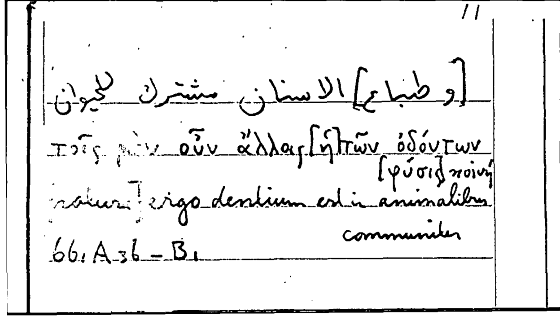 11
[و طباع] الاسنان مشترك للحيوان
τοῖς μὲν οὖν ἄλλοις [ἡ] τῶν ὀδόντων
[φύσις] κοινή
[natura] ergo dentium est in animalibus
communiter
661. A 36 – B1